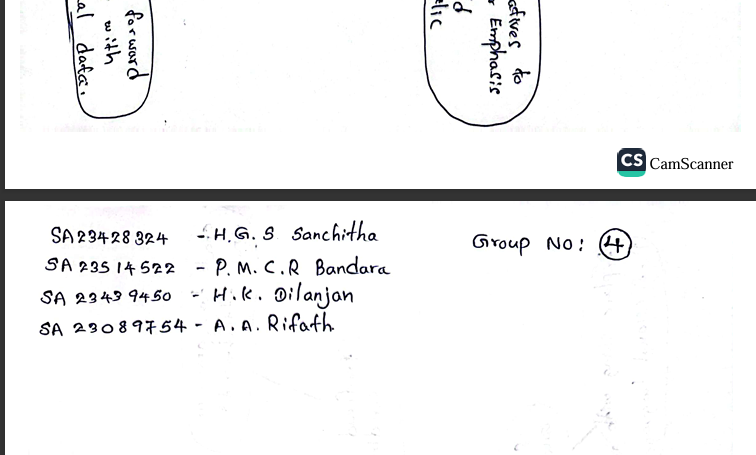 forward
with
al data.
atives to
Emphasis
d
lic
CS CamScanner
SA23428324 - H.G.S Sanchitha
SA 23514522 - P.M.C.R Bandara
SA 23439450 - H.K. Dilanjan
SA 23089754 - A.A. Rifath
Group No: 4